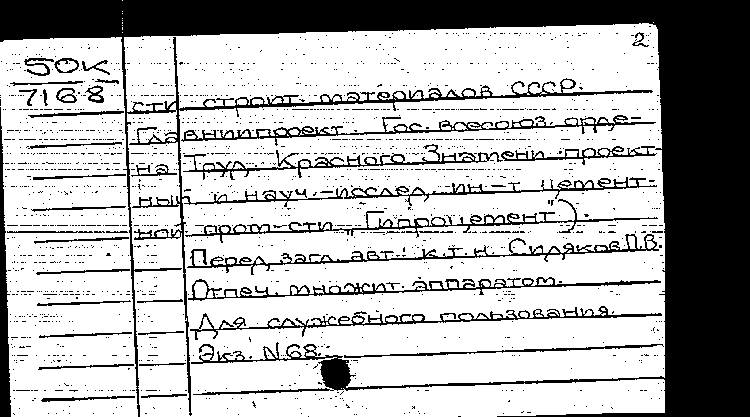 2
50К
7168
сти строит. материалов СССР.
Главниипроект. Гос. всесоюз. орде-
на Труд. Красного Знамени проект-
ный и науч.-исслед. ин-т цемент-
ной пром-сти „Гипроцемент").
Перед загл. авт.: к.т.н. Сидяков П.В.
Отпеч. множит. аппаратом.
Для служебного пользования.
Экз. N68.